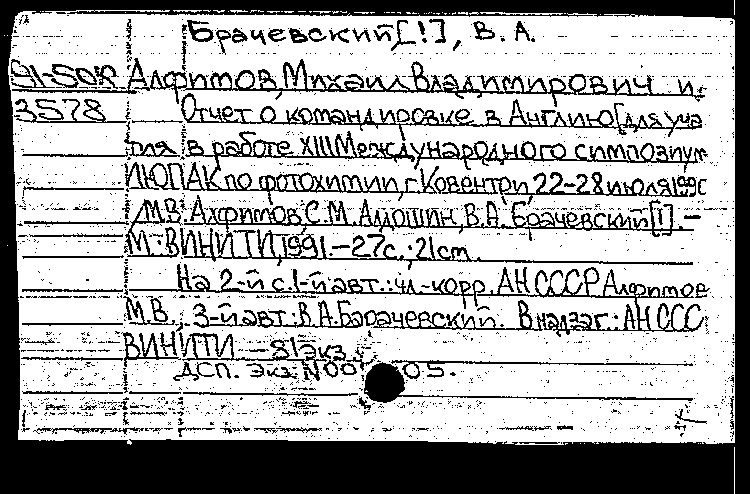 Брачевский[!], В.А.
91-50К Алфимов, Михаил Владимирович и.
3578 Отчет о командировке в Англию[для уча
тия в работе XIII Международного симпозиум
ИЮПАК по фотохимии, г. Ковентри, 22-28 июля 199
М.В. Алфимов, С.М. Алдошин, В.А. Брачевский[!].-
М.: ВИНИТИ, 1991.-27с.; 21см.
На 2-й с. 1-й авт.: чл.-корр. АН СССР Алфимов
М.В., 3-й авт.: В.А. Барачевский. В надзаг.: АН ССС
ВИНИТИ -81экз.
ДСП. Экз. N00 05.